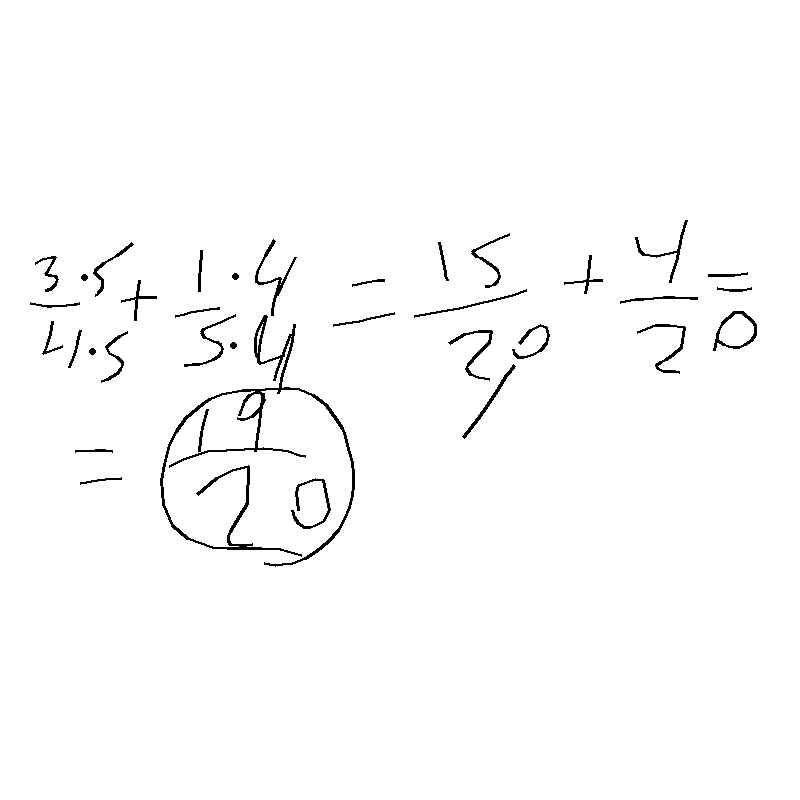 3·5/4·5 + 1·4/5·4 = 15/20 + 4/20 =
= 19/20